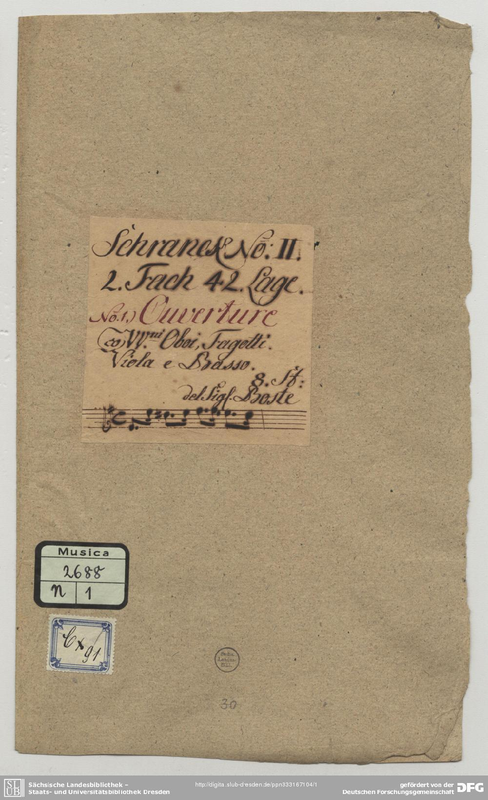 Schranck No: II.
2. Fach 4.2. Lage.
No. 1.) Ouverture
co) VV.ni Oboi, Fagotti.
Viola e Basso.
8. St:
del Sigl. Boste
Musica
2688
N 1
Cx 91
Sächs.
Landes-
Bibl.
30
SLUB
Sächsische Landesbibliothek –
Staats- und Universitätsbibliothek Dresden
http://digital.slub-dresden.de/ppn333167104/1
gefördert von der
Deutschen Forschungsgemeinschaft
DFG